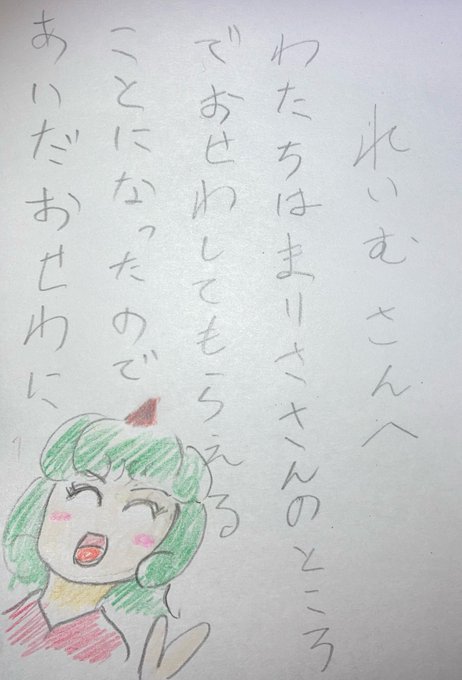 れいむ さんへ
わたちはまりささんのところ
でおせわしてもらえる
ことになったので
あいだおせわに